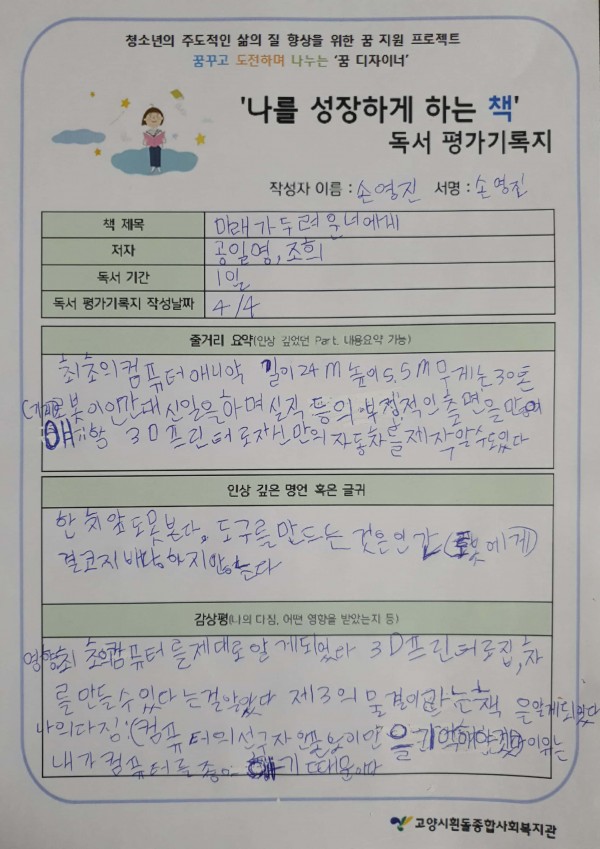 청소년의 주도적인 삶의 질 향상을 위한 꿈 지원 프로젝트
꿈꾸고 도전하며 나누는 '꿈 디자이너'
'나를 성장하게 하는 책'
독서 평가기록지
작성자 이름 : 손영진 서명 : 손영진
책 제목 미래가 두려운 너에게
저자 공일영, 조희
독서 기간 1일
독서 평가기록지 작성날짜 4/4
줄거리 요약(인상 깊었던 Part, 내용요약 가능)
최초의 컴퓨터 애니악 길이 24m 높이 5.5m 무게는 30톤
로봇이 인간 대신 일을 하며 실직 등의 부정적인 측면을
3D프린터로 자신만의 자동차를 제작할 수도 있다
인상 깊은 명언 혹은 글귀
한 치 앞도 못 본다, 도구를 만드는 것은 인간 (로봇에게)
결코 지배당하지 않는다
감상평(나의 다짐, 어떤 영향을 받았는지 등)
영향: 최초의 컴퓨터를 제대로 알게 되었다 3D프린터로 집, 차
를 만들 수 있다는 걸 알았다 제3의 물결이라는 책을 알게 되었다
나의 다짐: (컴퓨터의 선구자 앨런 을 기억해야겠다 이유는
내가 컴퓨터를 좋아하기 때문이다
고양시흰돌종합사회복지관